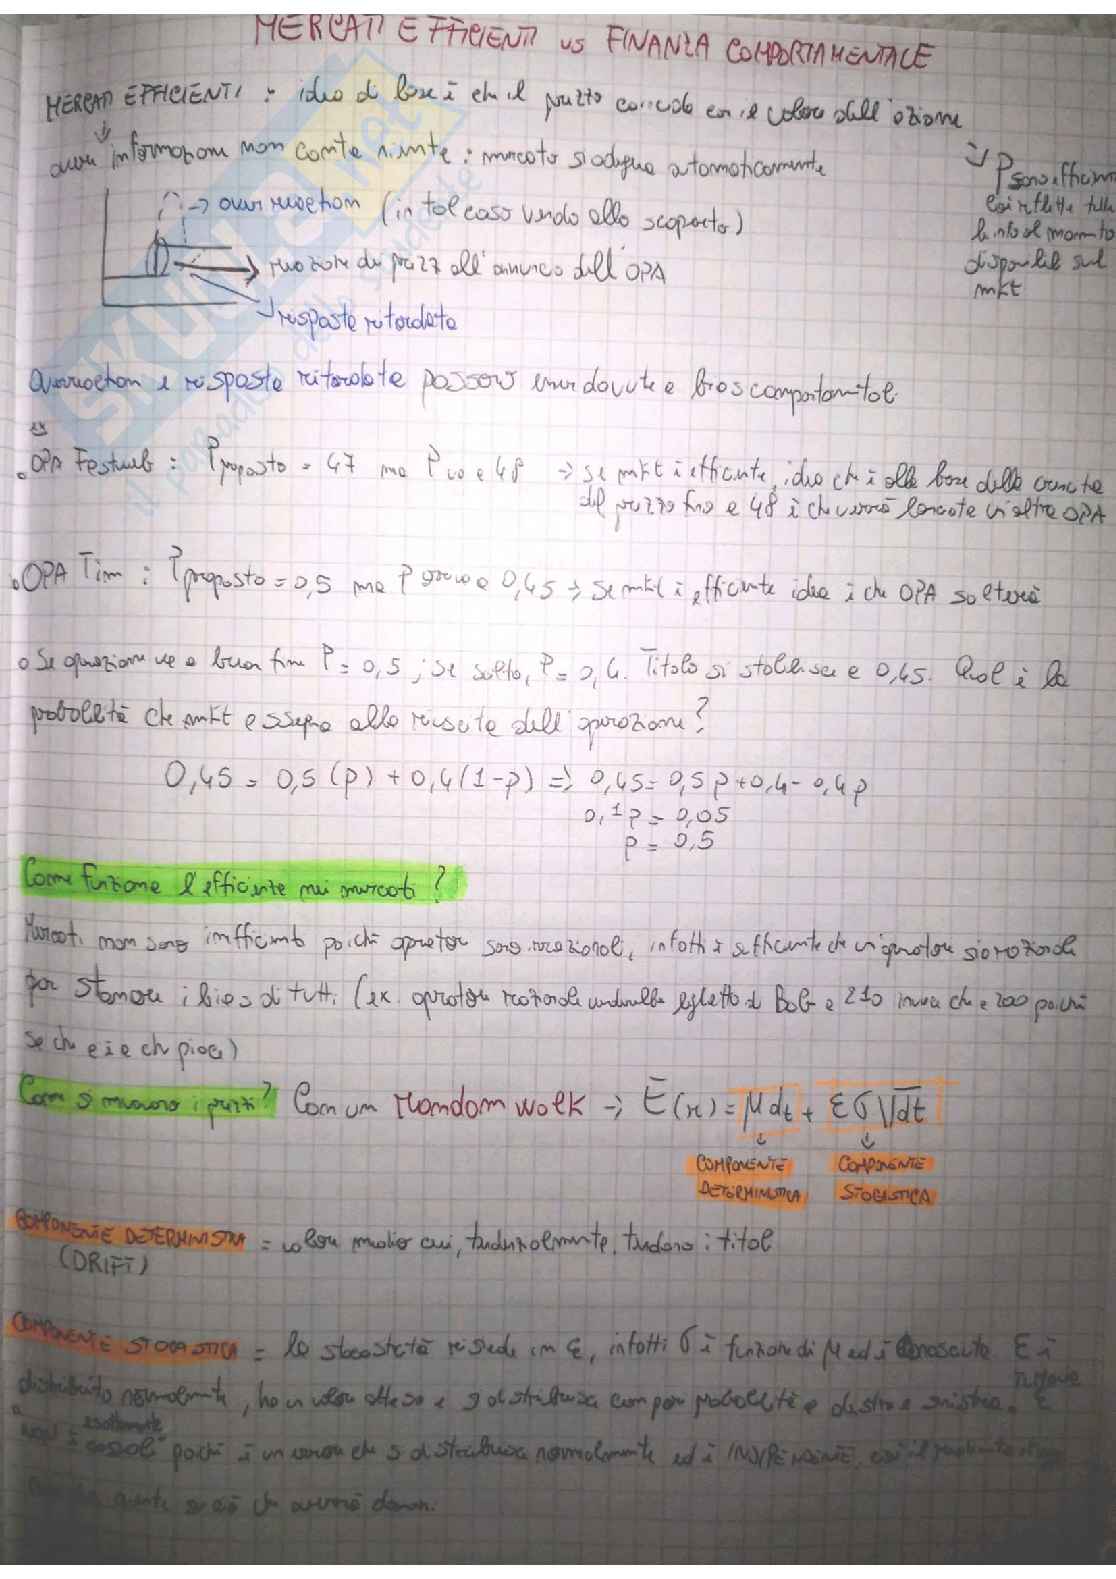 MERCATI EFFICIENTI vs FINANZA COMPORTAMENTALE
MERCATI EFFICIENTI : idea di base è che il prezzo coincida con il valore dell'azione
avere informazioni non conta niente : mercato si adegua automaticamente
→ P sono efficienti
così riflette tutte
le info al momento
disponibili sul
mkt
→ overreaction (in tal caso vendo allo scoperto)
→ reazione dei prezzi all'annuncio dell'OPA
→ risposta ritardata
Overreaction e risposta ritardata possono essere dovute a bias comportamentali
OPA Fastweb : P proposto = 47 ma P va a 48 → se mkt è efficiente, idea che è alla base della crescita
del prezzo fino a 48 è che verrà lanciata un'altra OPA
OPA Tim : P proposto = 0,5 ma P a 0,45 → se mkt è efficiente idea è che OPA salterà
Se operazione va a buon fine P = 0,5 ; se salta, P = 0,4. Titolo si stabilisce a 0,45. Qual è la
probabilità che mkt assegna alla riuscita dell'operazione?
0,45 = 0,5 (p) + 0,4 (1-p) ⇒ 0,45 = 0,5 p + 0,4 - 0,4 p
0,1 p = 0,05
p = 0,5
Come funziona l'efficienza nei mercati ?
Mercati non sono inefficienti poiché operatori sono irrazionali, infatti è sufficiente che un operatore sia razionale
per stanare i bias di tutti (ex. operatore razionale venderebbe biglietto di a 210 invece che a 200 poiché
sa che c'è a chi piace)
Come si muovono i prezzi? Con un random walk → E(r) = μ dt + ε σ √dt
COMPONENTE DETERMINISTICA
COMPONENTE STOCASTICA
COMPONENTE DETERMINISTICA = valore medio cui, tendenzialmente, tendono i titoli
(DRIFT)
COMPONENTE STOCASTICA = la stocasticità risiede in ε, infatti σ è funzione di μ ed è conosciuta. ε è
distribuito normalmente, ha un valore atteso e si distribuisce con pari probabilità a destra e sinistra. ε
non è esattamente poiché è un che si distribuisce normalmente ed è INDIPENDENTE, così il
niente su ciò che avverrà domani.